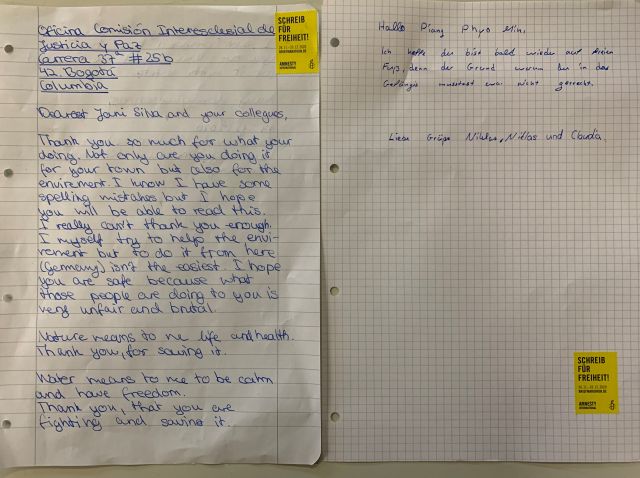 Oficina Comisión Intereclesial de
Justicia y Paz
Carrera 37ª #25b
42 Bogotá
Columbia
Dearest Jani Silva and your collegues,
Thank you so much for what your
doing. Not only are you doing it
for your town but also for the
envirement. I know I have some
spelling mistakes but I hope
you will be able to read this.
I really can't thank you enough.
I myself try to help the envi-
rement but to do it from here
(Germany) isn't the easiest. I hope
you are safe because what
those people are doing to you is
very unfair and brutal.
Nature means to me life and health.
Thank you, for saving it.
Water means to me to be calm
and have freedom.
Thank you, that you are
fighting and saving it.
SCHREIB
FÜR
FREIHEIT!
BRIEFMARATHON.DE
AMNESTY
INTERNATIONAL
Hallo Piang Phyo Min,
Ich hoffe du bist bald wieder auf freien
Fuß, denn der Grund warum du in das
Gefängnis musstest war nicht gerecht.
Liebe Grüße Niklas, Niklas und Claudia.
SCHREIB
FÜR
FREIHEIT!
BRIEFMARATHON.DE
AMNESTY
INTERNATIONAL